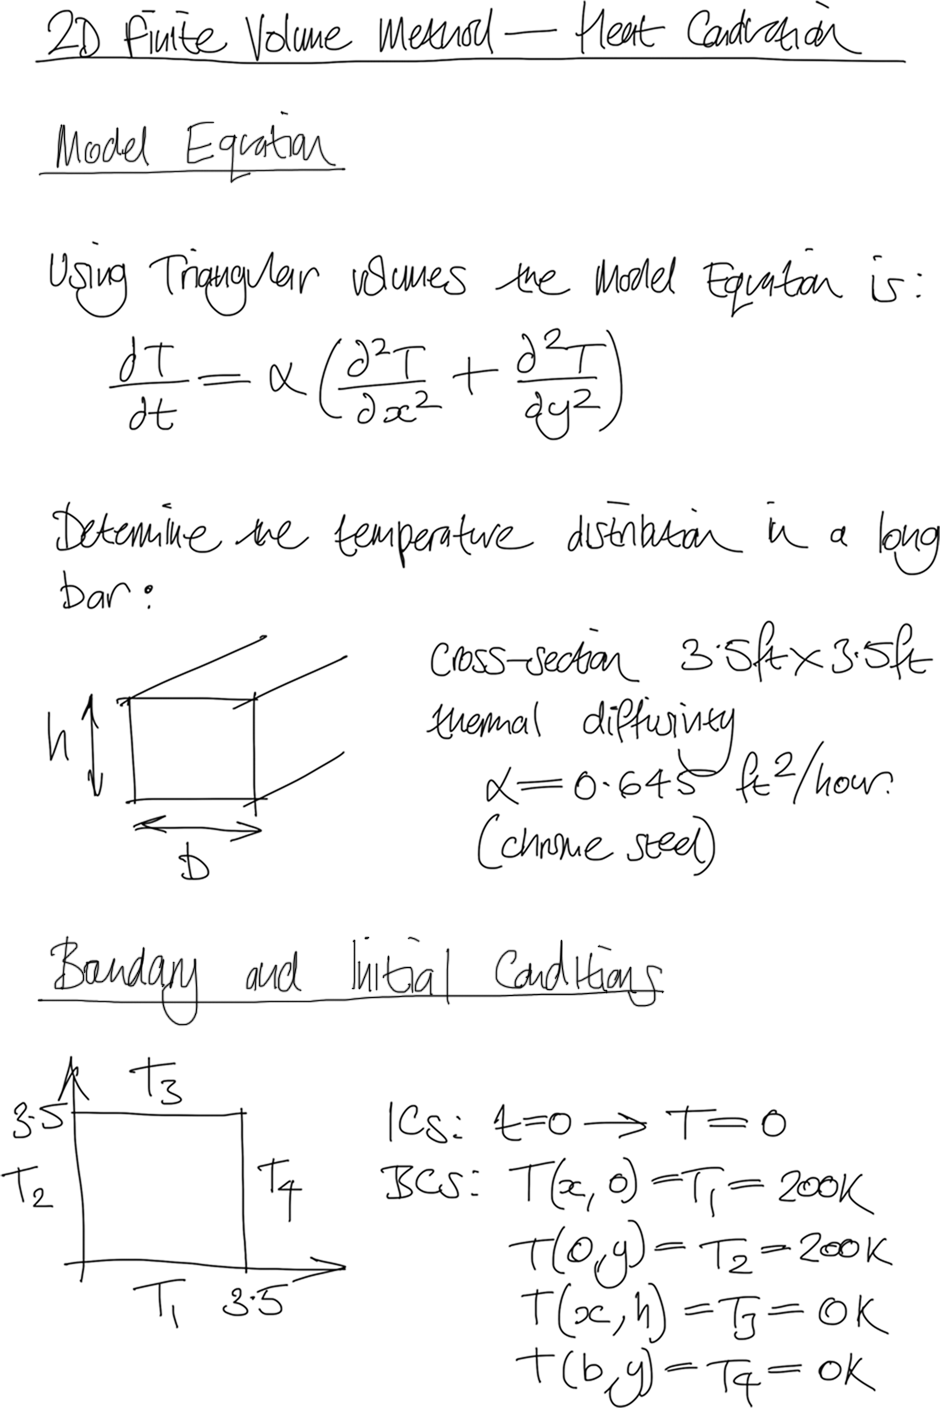 2D Finite Volume Method — Heat Conduction
Model Equation
Using Triangular volumes the Model Equation is:
∂T/∂t = α (∂²T/∂x² + ∂²T/∂y²)
Determine the temperature distribution in a long
bar:
cross-section 3.5ft×3.5ft
thermal diffusivity
α=0.645 ft²/hour.
(chrome steel)
h
D
Boundary and Initial Conditions
T3
3.5
T2
T4
T1 3.5
ICs: t=0 → T=0
BCs: T(x,0)=T1=200K
T(0,y)=T2=200K
T(x,h)=T3=0K
T(b,y)=T4=0K